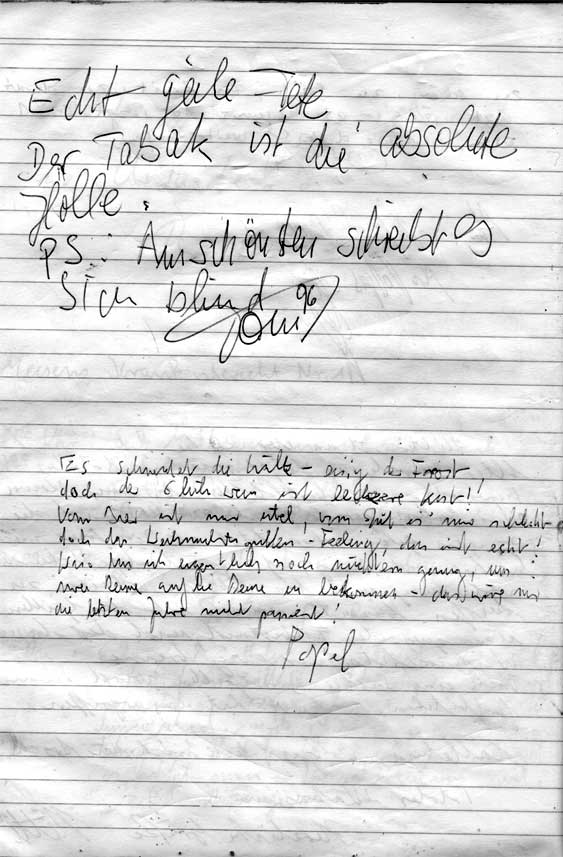 Echt geile Fete
Der Tabak ist die absolute
Hölle.
PS.: Am schönsten schreibt es
sich blind
96
Es schneidet die Kälte – eisig der Frost
doch der Glühwein ist leckere Kost!!
Vom Bier ist mir übel, vom is' mir schlecht
doch das -Feeling, das ist echt!
bin ich eigentlich noch nüchtern genug, um
meine Reime auf die Beine zu bekommen – das wäre mir
die letzten Jahre nicht passiert!
Popel